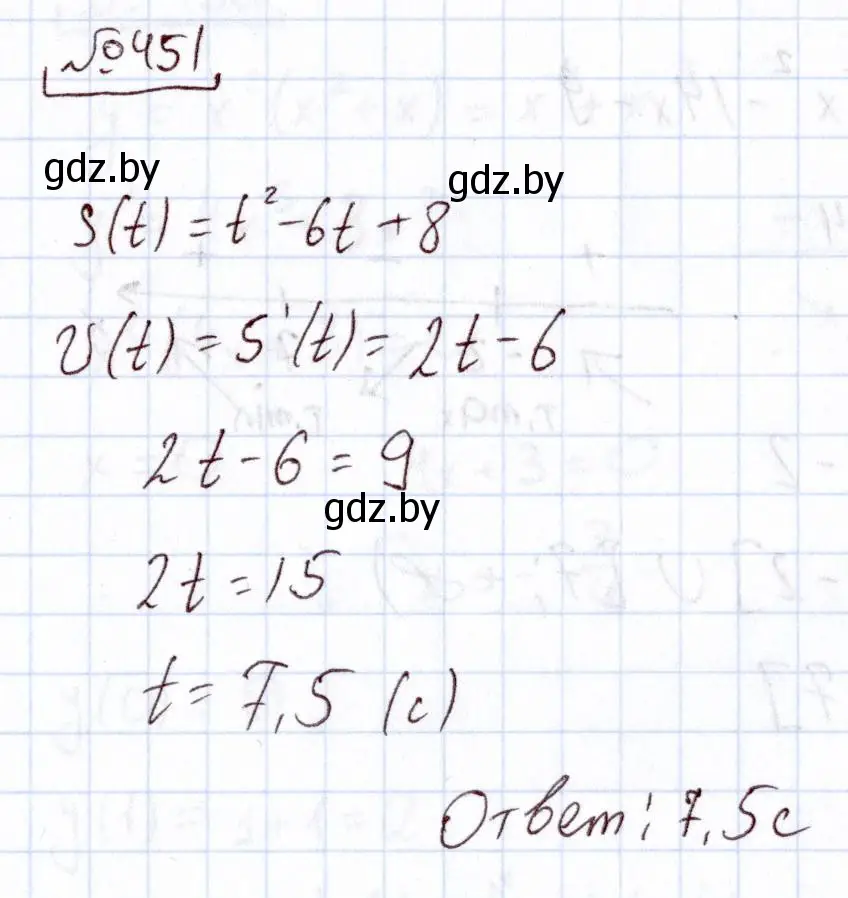 №451
gdz.by
gdz.by
S(t) = t² - 6t + 8
v(t) = S'(t) = 2t - 6
2t - 6 = 9
gdz.by
2t = 15
t = 7,5 (с)
Ответ: 7,5с